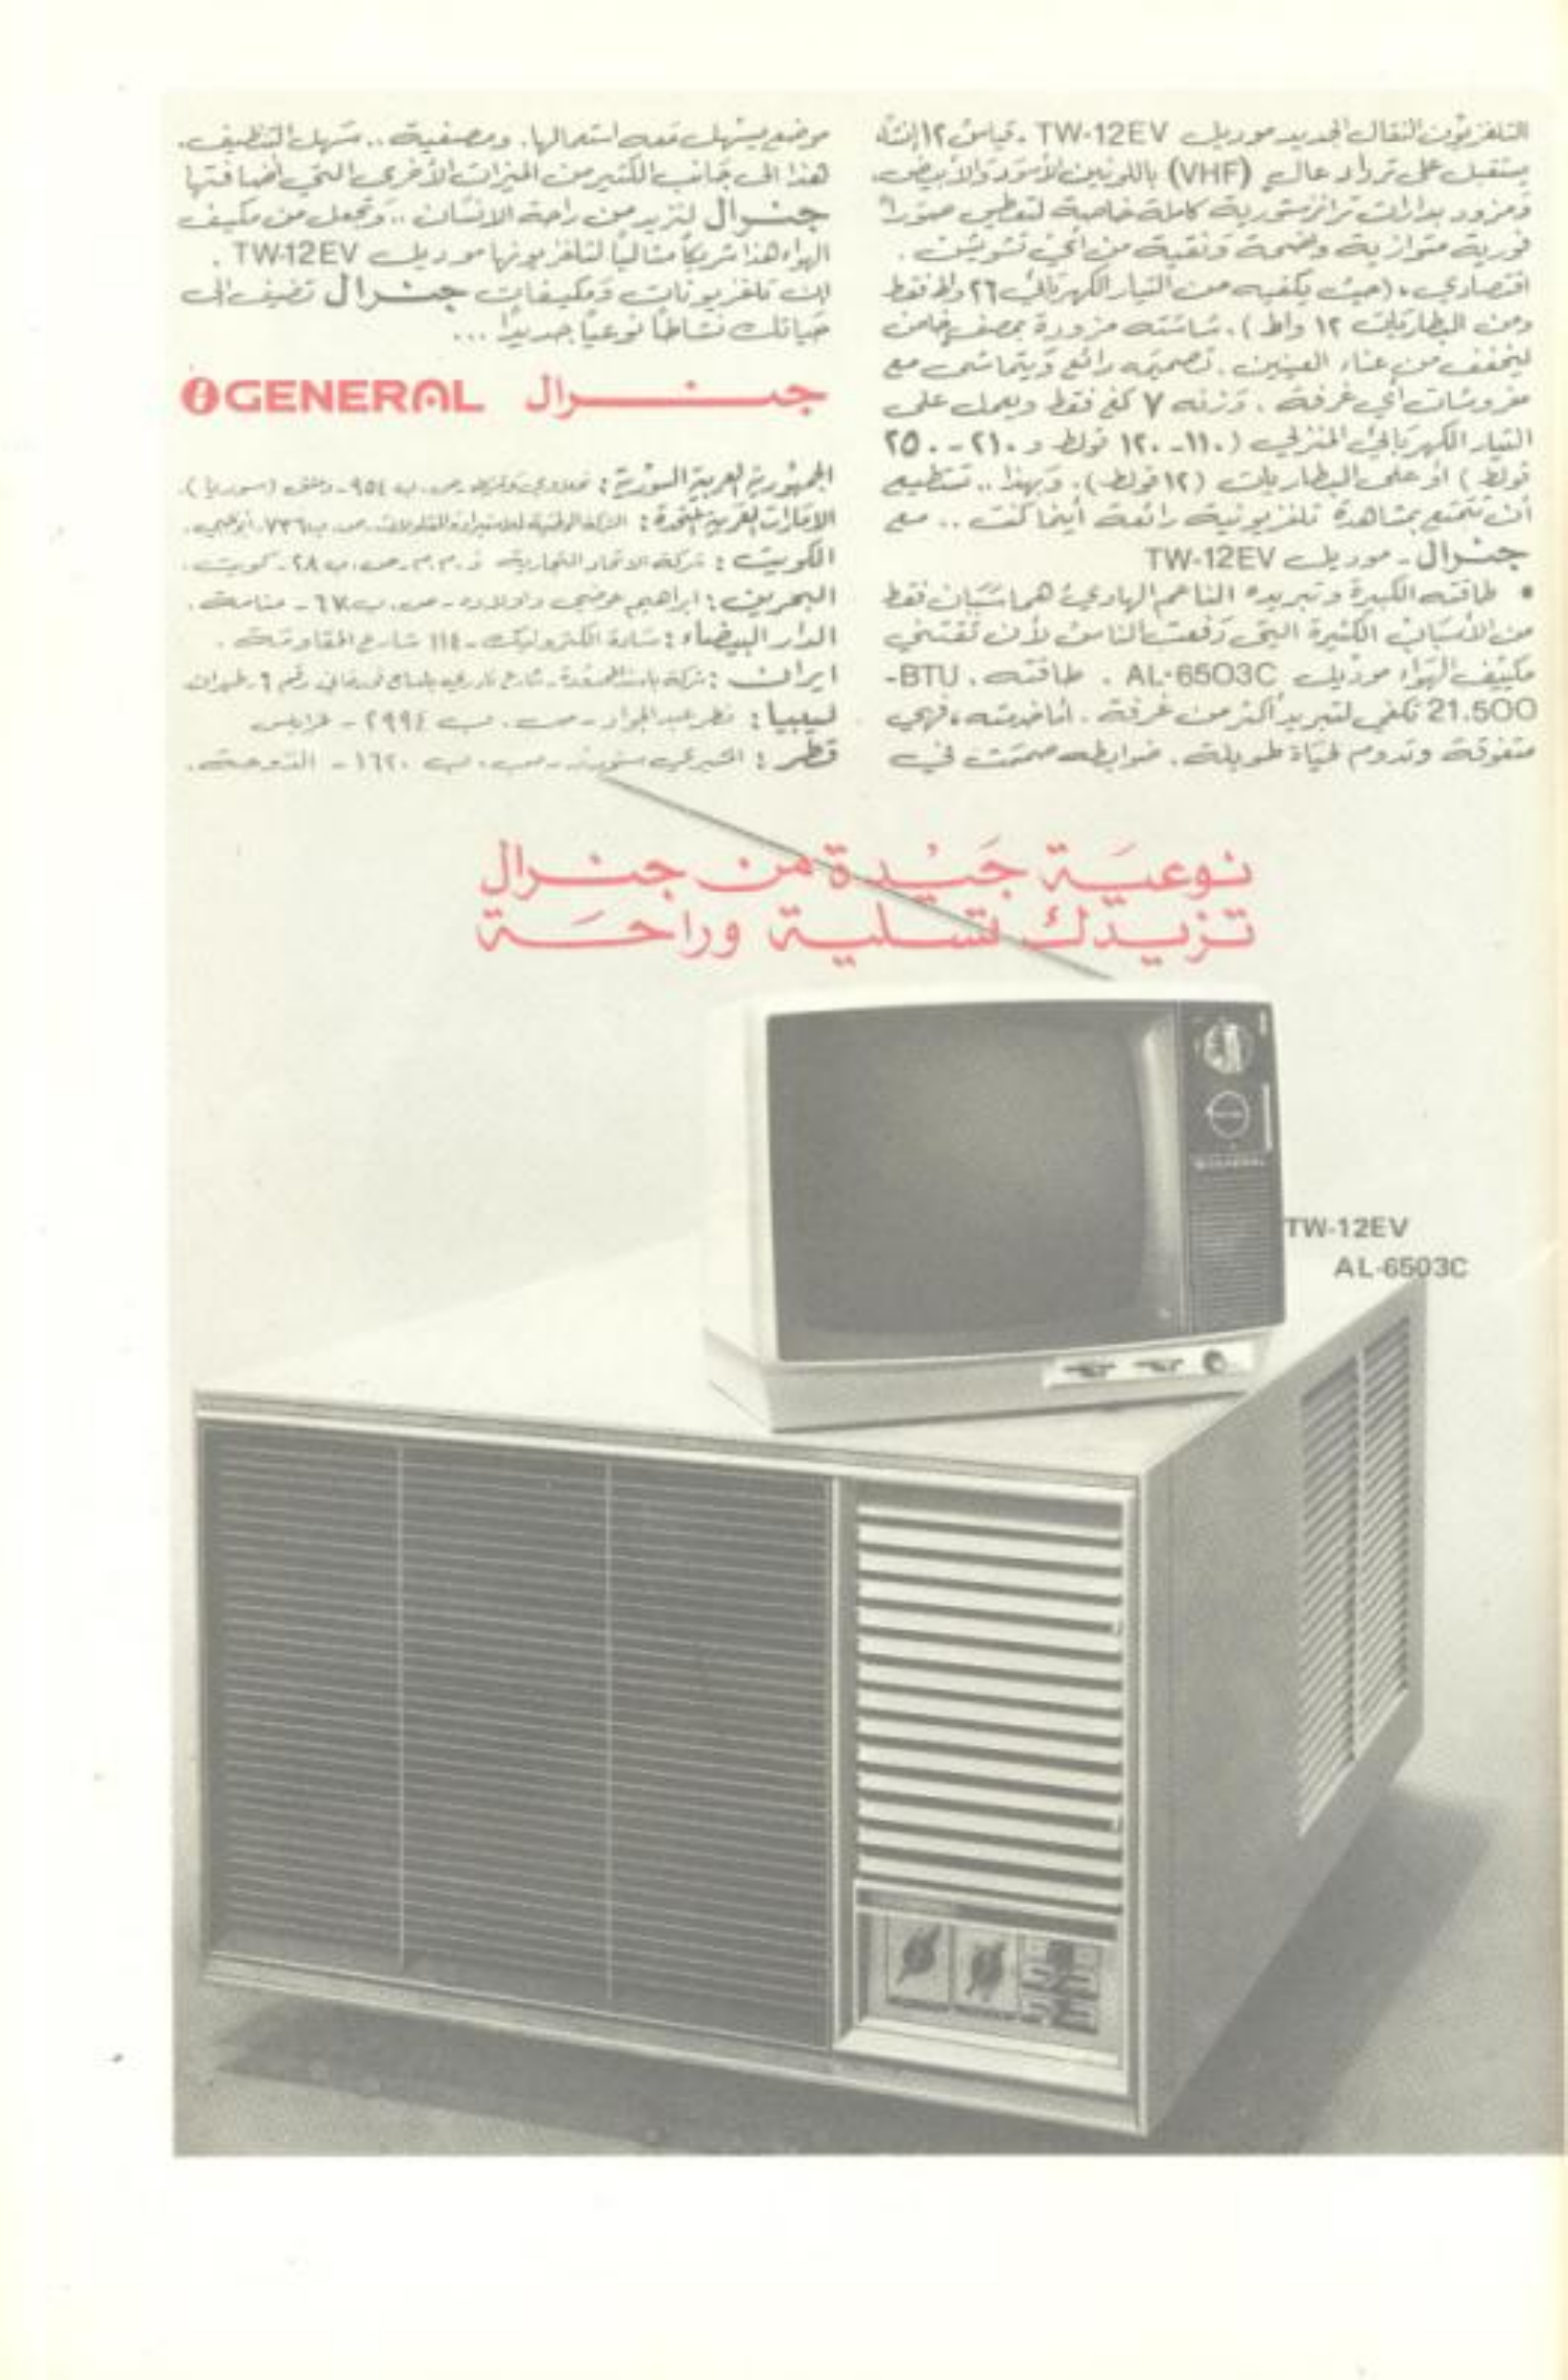 التلفزيون النقال الجديد موديل TW-12EV . قياس ١٢ إنشاً،
يستقبل على ترداد عالٍ (VHF) باللونين الأسود والأبيض،
ومزود بدارات ترانزستورية كاملة خاصة لتعطي صوراً
فورية متوازية واضحة ونقية من أي تشويش .
اقتصادي، (حيث يكفيه من التيار الكهربائي ٢٦ واط فقط
ومن البطاريات ١٢ واط). شاشته مزودة بمصفٍ خاص
ليخفف من عناء العينين . تصميمه رائع ويتماشى مع
مفروشات أي غرفة . وزنه ٧ كغ فقط ويعمل على
التيار الكهربائي المنزلي (١١٠-١٢٠ فولط و ٢١٠-٢٥٠
فولط) أو على البطاريات (١٢ فولط). وبهذا .. تستطيع
أن تتمتع بمشاهدة تلفزيونية رائعة أينما كنت .. مع
جنرال - موديل TW-12EV
• طاقته الكبيرة وتبريده الناعم الهادئ هما سببان فقط
من الأسباب الكثيرة التي دفعت الناس لأن تقتني
مكييف الهواء موديل AL-6503C . طاقته، BTU-
21.500 تكفي لتبريد أكثر من غرفة . أما خدمته، فهي
متفوقة وتدوم لحياة طويلة . ضوابطه صممت في
موضع يسهل معه استعمالها. ومصفيه .. سهل التنظيف.
هذا الى جانب الكثير من الميزات الأخرى التي أضافتها
جنرال لتزيد من راحة الانسان .. وتجعل من مكيف
الهواء هذا شريكاً مثالياً لتلفزيونها موديل TW-12EV .
إن تلفزيونات ومكيفات جنرال تضيف إلى
حياتك نشاطاً نوعياً جديداً ...
جنرال GENERAL
الجمهورية العربية السورية : ص.ب ٩٥٤ - دمشق (سوريا).
الامارات العربية المتحدة : الشركة الوطنية للاستيراد والمقاولات. ص.ب ٧٣٦، أبوظبي.
الكويت : شركة الاتحاد التجارية ذ.م.م. ص.ب ٢٨ - كويت .
البحرين : ابراهيم عوضي واولاده - ص.ب ٦٧ - منامة .
الدار البيضاء : سادة الكترونيك - ١١٤ شارع المقاومة .
ايران : شركة شارع نادري رقم ٦ - طهران
ليبيا : نصر عبد الجواد - ص.ب ٢٩٩٤ - طرابلس
قطر : ص.ب ١٦٢٠ - الدوحة .
نوعية جيدة من جنرال
تزيدك تسلية وراحة
GENERAL
TW-12EV
AL-6503C